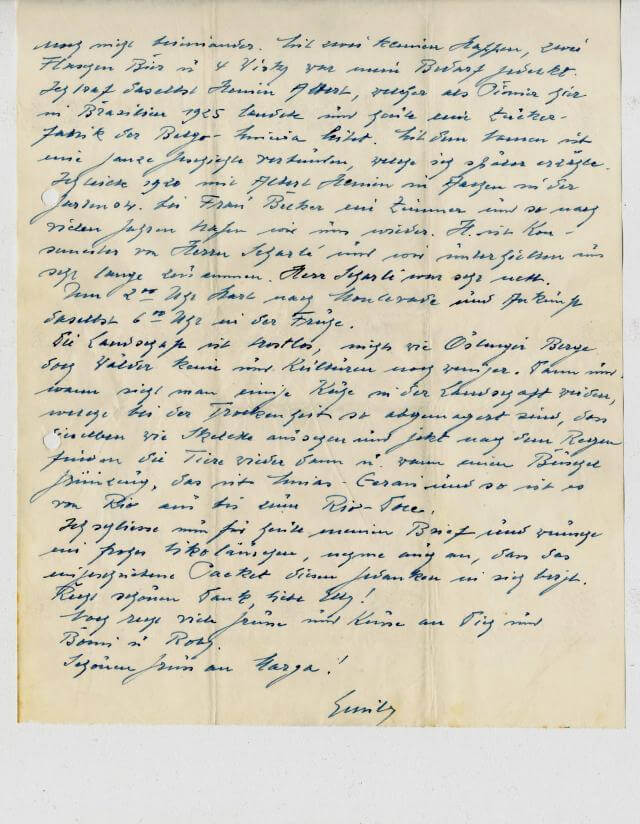 noch nicht beieinander. Mit zwei kleinen Happen, zwei
Flaschen Bier u 4 Visky war mein Bedarf gedeckt.
Ich traf daselbst Hemin Albert, welcher als Pionier hier
in Brasilien 1925 landete und heute eine Zucker-
fabrik der Belgo-Mineira leitet. Mit dem Namen ist
eine ganze Geschichte verbunden, welche ich später erzähle.
Ich teilte 1920 mit Albert Hemin in Aachen in der
bei Frau Becker ein Zimmer und so nach
vielen Jahren trafen wir uns wieder. H. ist Kon-
semester von Herrn Scharlé und wir unterhielten uns
sehr lange zusammen. Herr Scharlé war sehr nett.
Um 2 00 Uhr Start nach Monlevade und Ankunft
daselbst 6 00 Uhr in der Frühe.
Die Landschaft ist trostlos, nichts wie Berge
doch Wälder keine und Kulturen noch weniger. Dann und
wann sieht man einige Kühe in der Landschaft weiden,
welche bei der Trockenheit so abgemagert sind, dass
dieselben wie Skelette aussehen und jetzt nach dem Regen
finden die Tiere wieder dann u. wann einen Büschel
Grünzeug, das ist Minas-Gerais und so ist es
von Rio aus bis zum Rio-Doce.
Ich schliesse nun für heute meinen Brief und wünsche
ein frohes Nikoläuschen, nehme auch an, dass das
eingeschriebene Packet diesen Gedanken in sich birgt.
Recht schönen Dank, liebe Elly!
Noch recht viele Grüsse und Küsse an Dich und
Bömi u Roby.
Schönen Gruss an Marga!
Emily